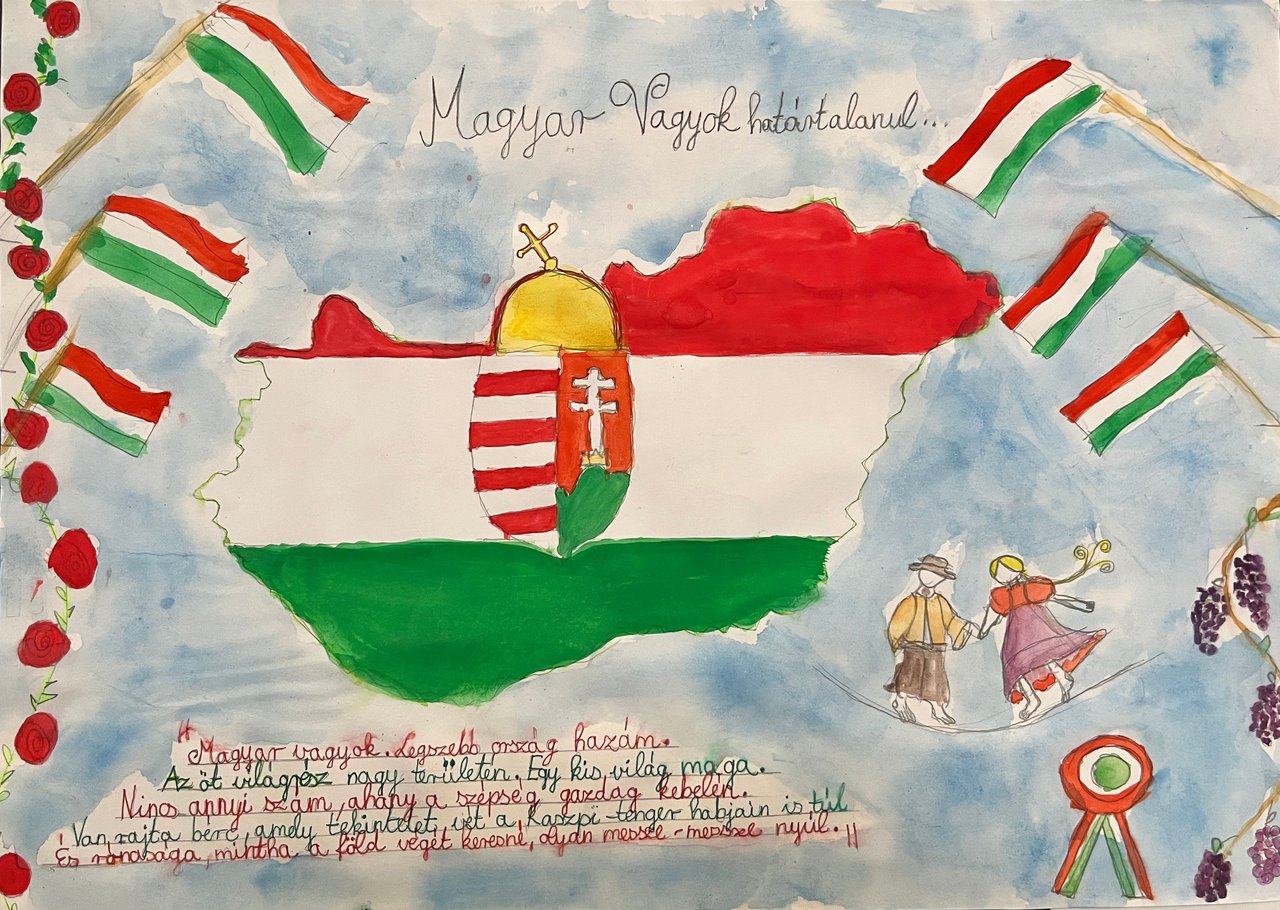 Magyar Vagyok határtalanul...
"Magyar vagyok. Legszebb ország hazám.
Az öt világrész nagy területén. Egy kis világ maga.
Nincs annyi szám, ahány a szépség gazdag kebelén.
Van rajta bérc, amely tekintetet vét a Kaszpi-tenger habjain is túl
És rónasága, mintha a föld végét keresné, olyan messze-messze nyúl."